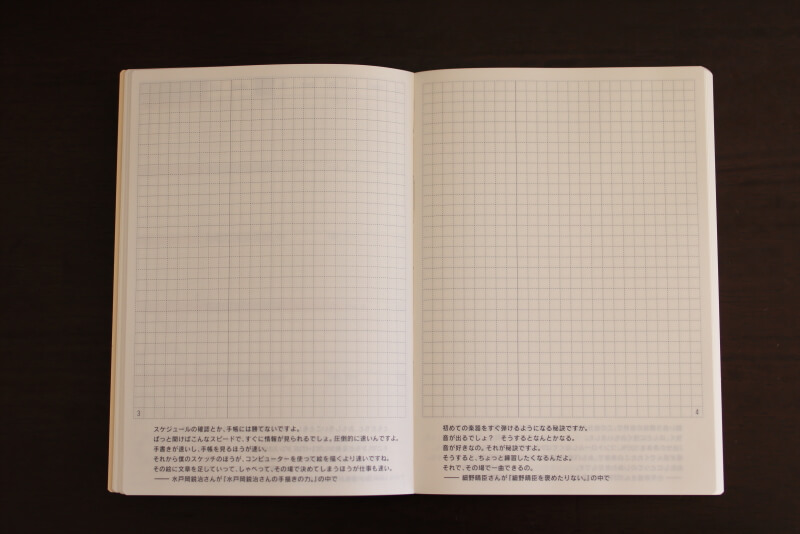 3
スケジュールの確認とか、手帳には勝てないですよ。
ぱっと開けばこんなスピードで、すぐに情報が見られるでしょ。圧倒的に速いんですよ。
手書きが速いし、手帳を見るほうが速い。
それから僕のスケッチのほうが、コンピューターを使って絵を描くより速いですね。
その絵に文章を足していって、しゃべって、その場で決めてしまうほうが仕事も速い。
―― 水戸岡鋭治さんが『水戸岡鋭治さんの手描きの力。』の中で
4
初めての楽器をすぐ弾けるようになる秘訣ですか。
音が出るでしょ？　そうするとなんとかなる。
音が好きなの。それが秘訣ですよ。
そうすると、ちょっと練習したくなるんだよ。
それで、その場で一曲できるの。
―― 細野晴臣さんが『細野晴臣を褒めたりない。』の中で